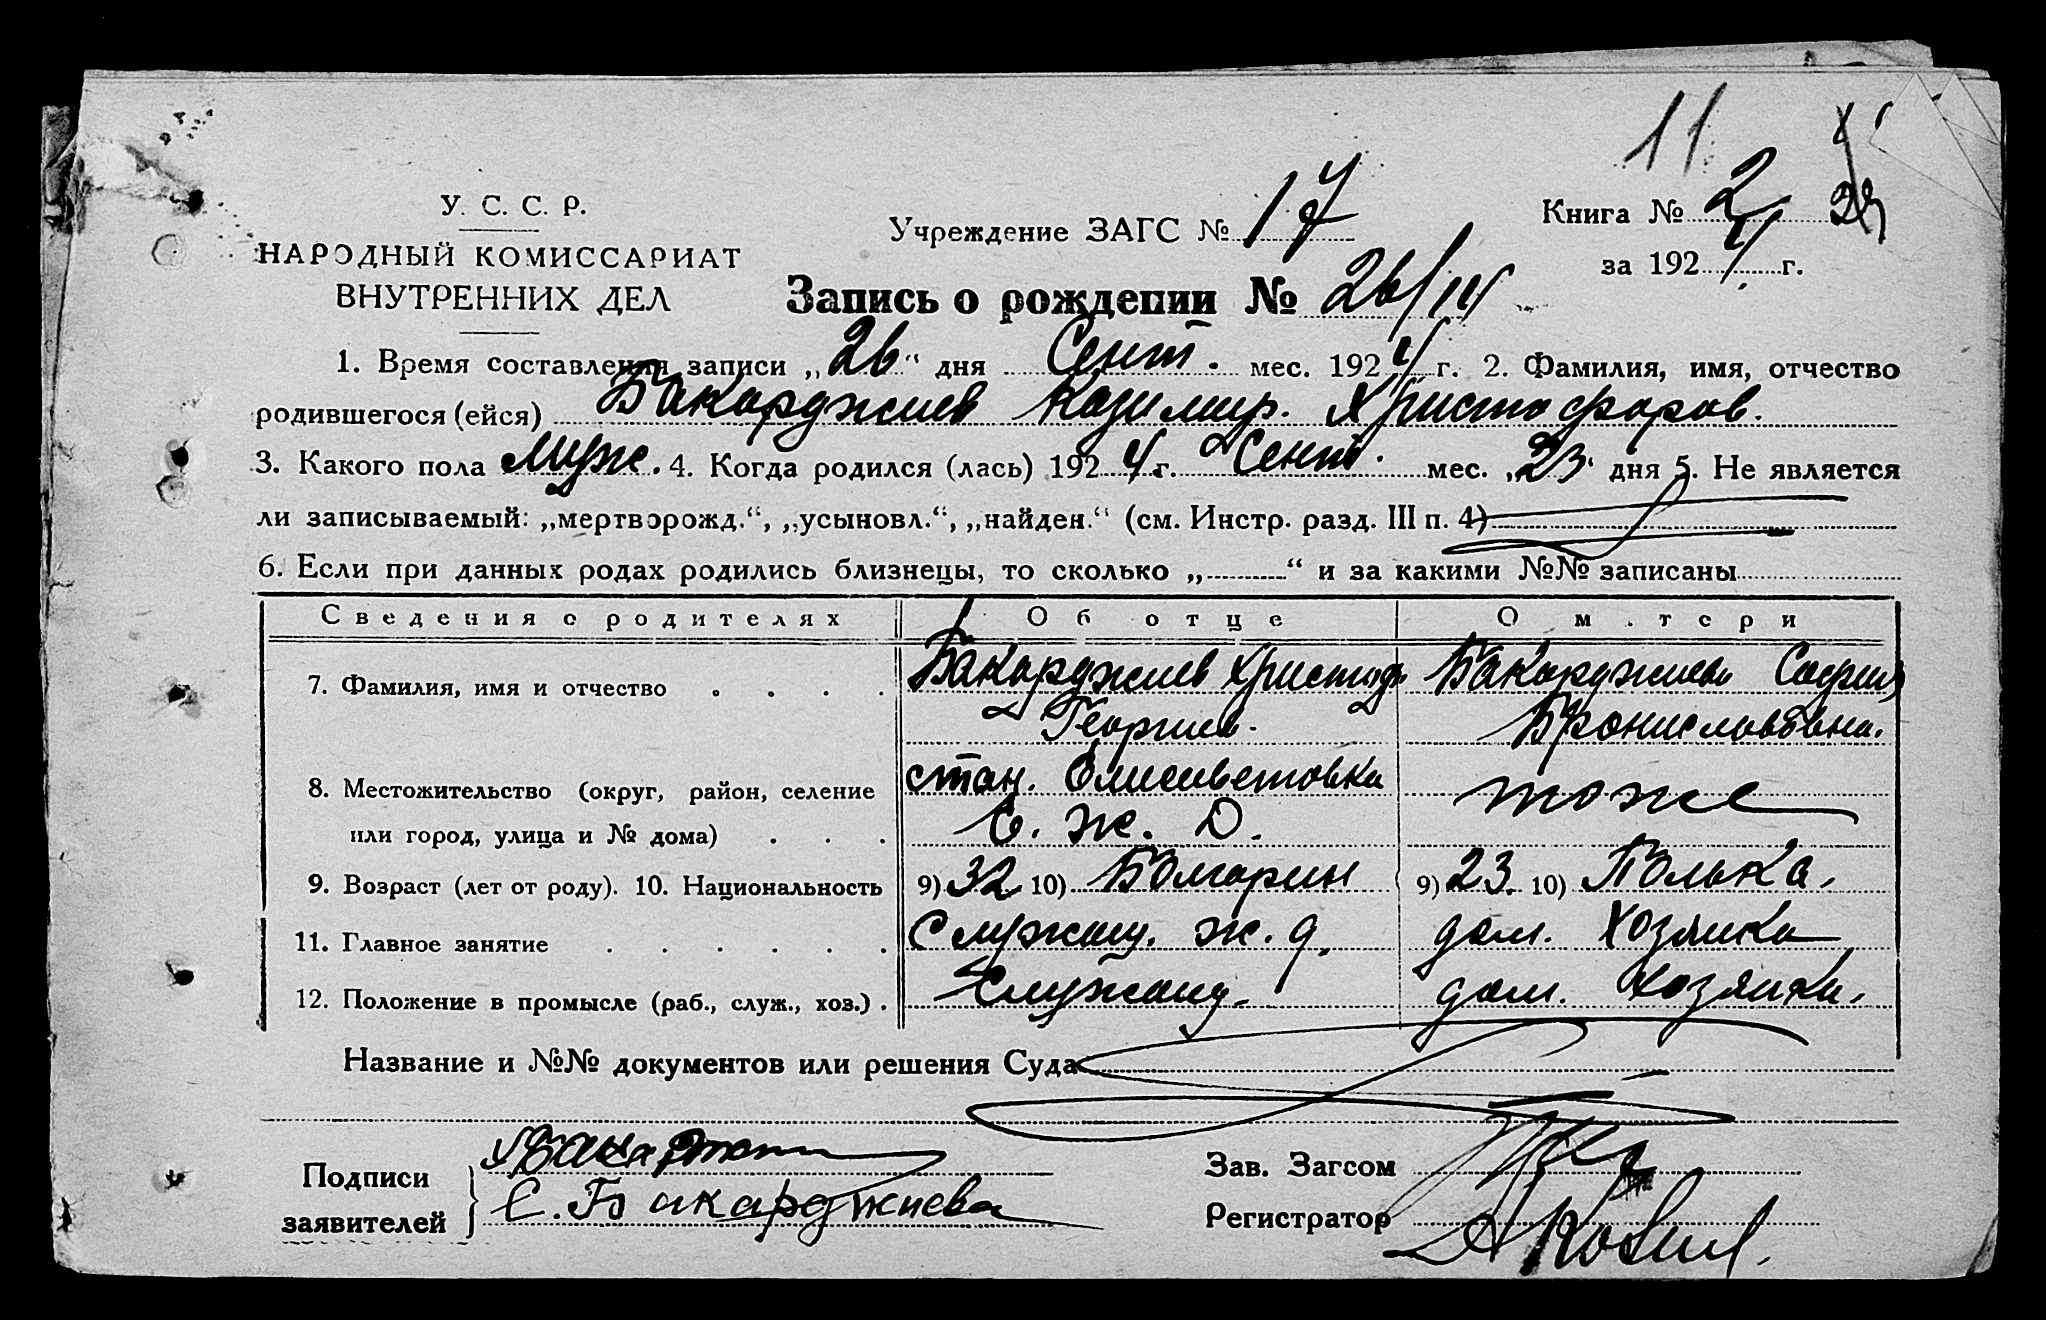 11
У. С. С. Р.
НАРОДНЫЙ КОМИССАРИАТ
ВНУТРЕННИХ ДЕЛ
Учреждение ЗАГС № 17
Книга № 2
за 1924 г.
Запись о рождении № 26/
1. Время составления записи „26“ дня Сент. мес. 1924 г. 2. Фамилия, имя, отчество
родившегося (ейся) Бакарджиев Казимир. Христофоров.
3. Какого пола муж. 4. Когда родился (лась) 1924 г. Сент. мес. „23“ дня 5. Не является
ли записываемый: „мертворожд.“, „усыновл.“, „найден.“ (см. Инстр. разд. III п. 4)
6. Если при данных родах родились близнецы, то сколько „ “ и за какими №№ записаны
Сведения о родителях Об отце О м.тери
7. Фамилия, имя и отчество Бакарджиев Христоф Бакарджиева София
Георгиев. Брониславовна.
8. Местожительство (округ, район, селение стан. Елисаветовка тоже
или город, улица и № дома) Е. Ж. Д.
9. Возраст (лет от роду). 10. Национальность 9) 32 10) Болгарин 9) 23. 10) Полька.
11. Главное занятие Служащ. ж. д. дом. Хозяйка
12. Положение в промысле (раб., служ., хоз.) Служащ. дом. хозяйка.
Название и №№ документов или решения Суда
Подписи
заявителей
С. Бакарджиева
Зав. Загсом
Регистратор